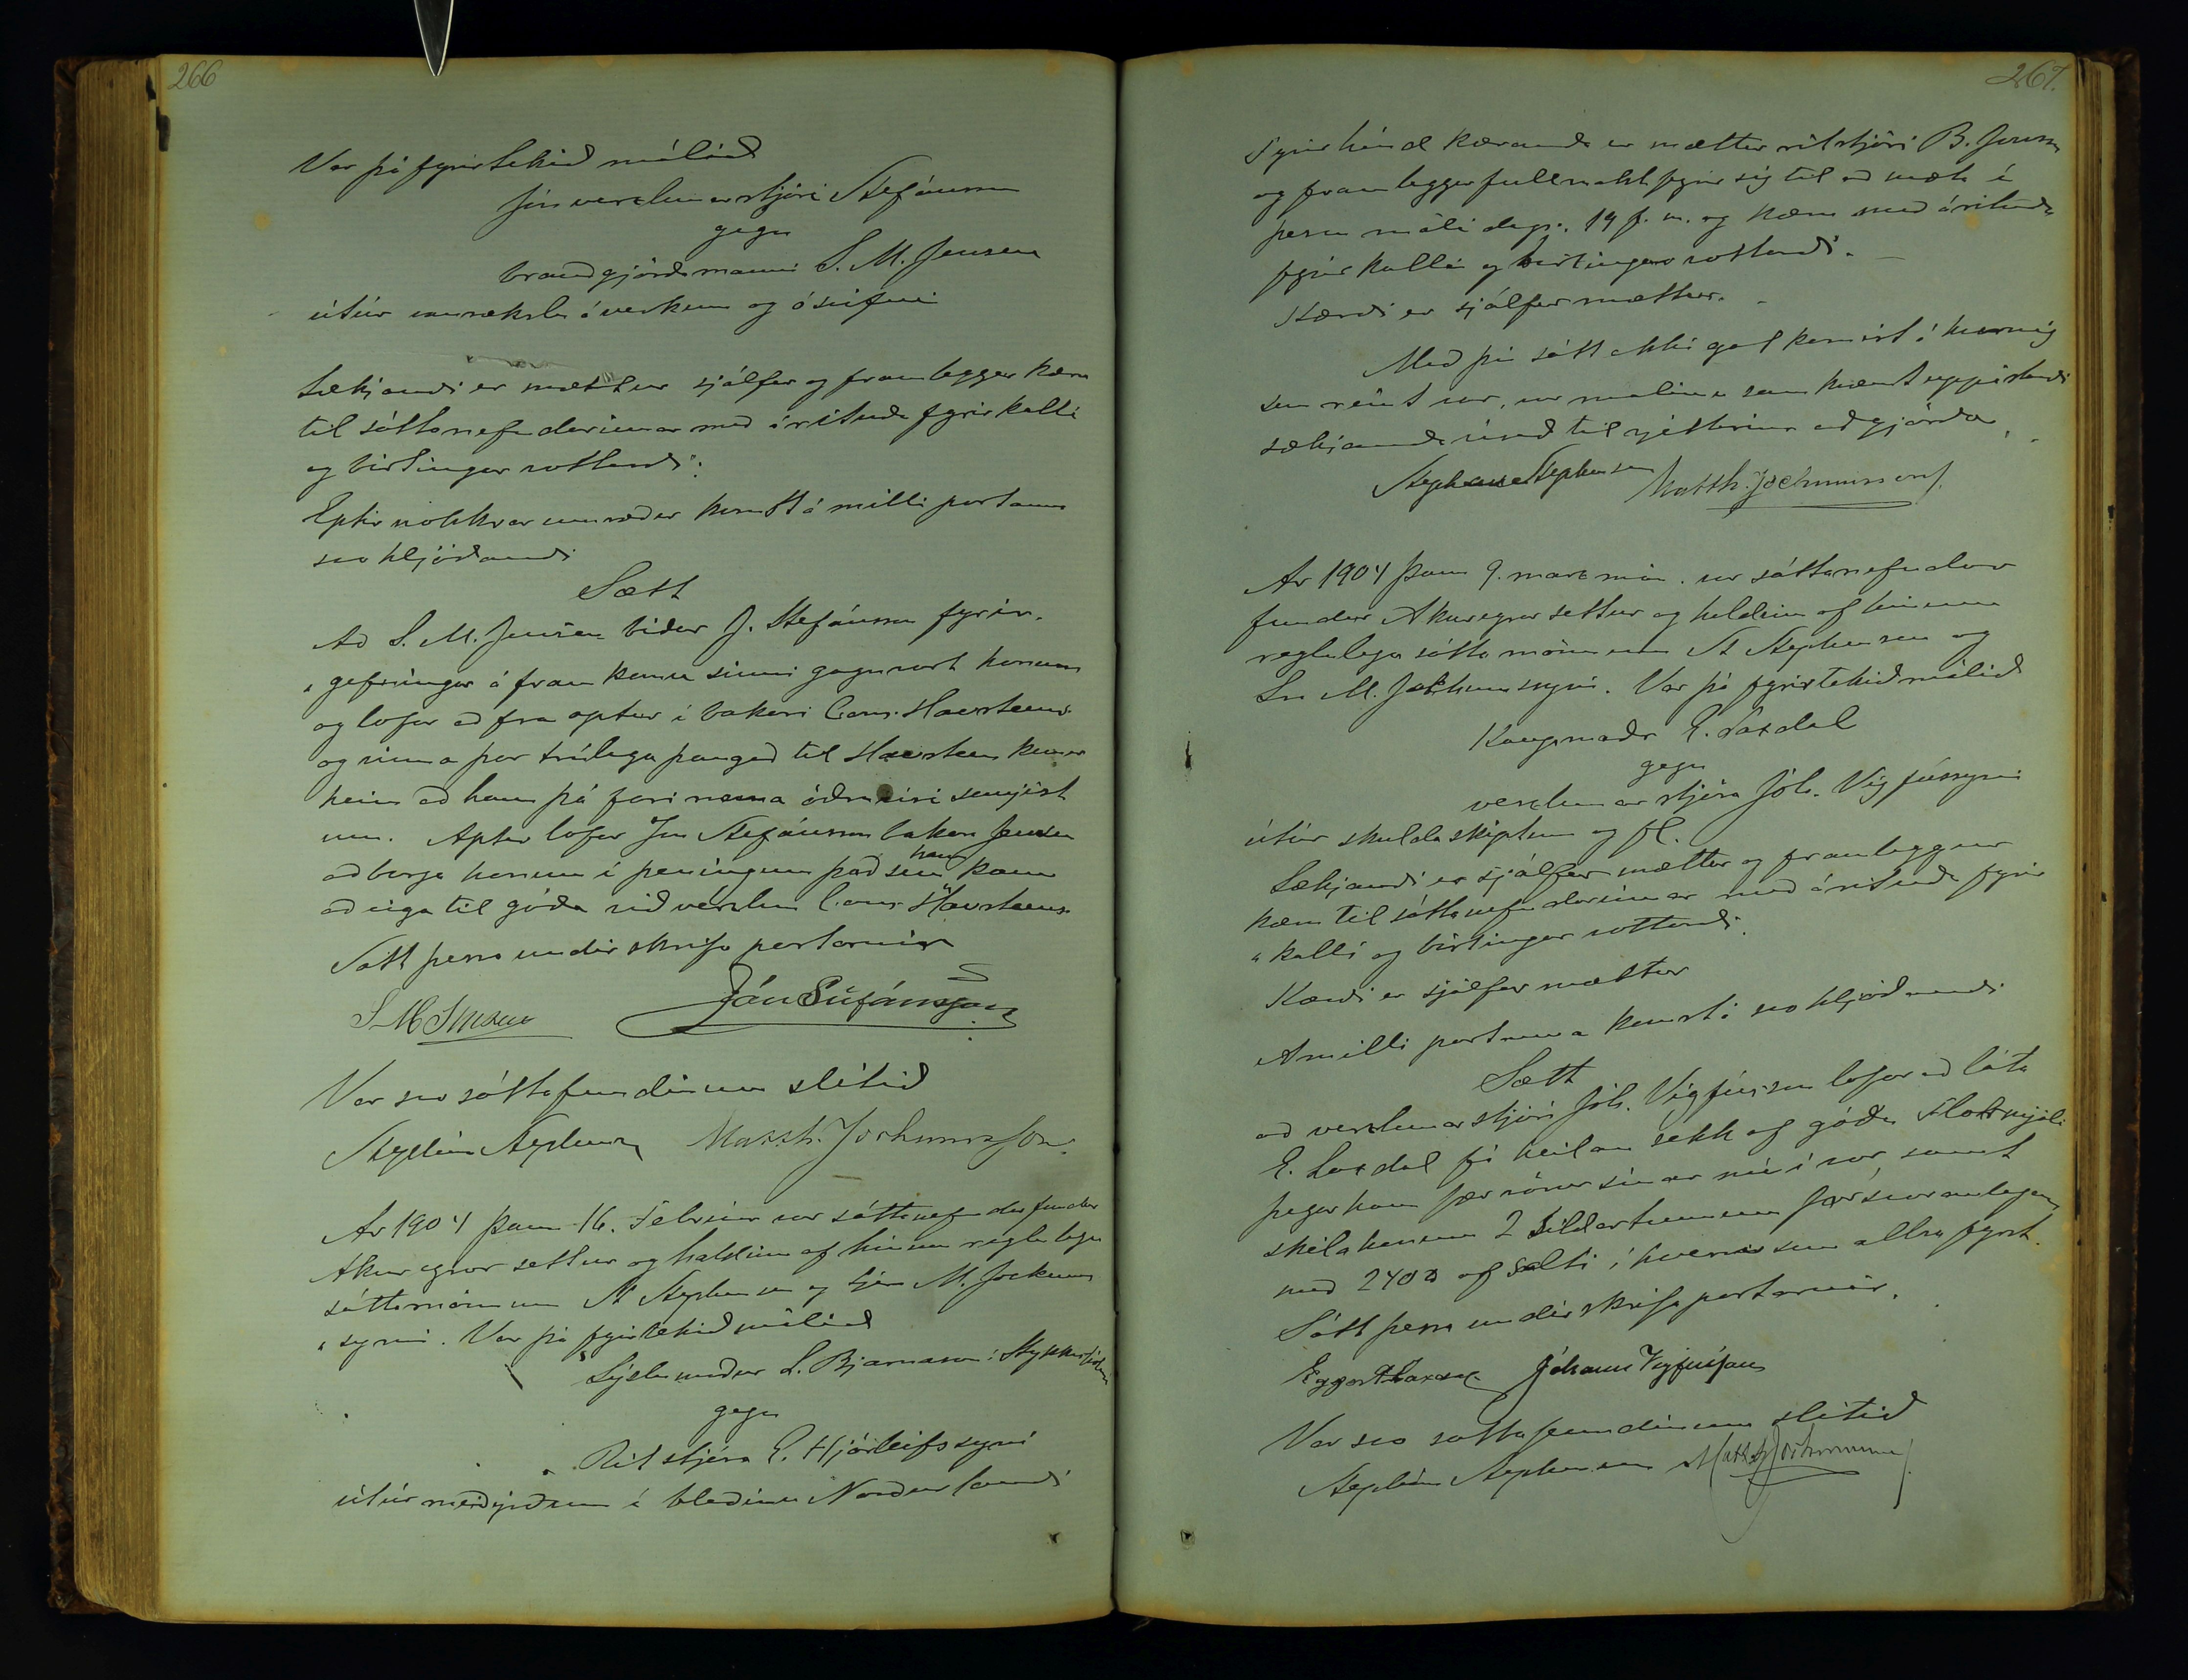 266
Var þá fyrirtekið málið
Jón verzlunarstjóri Stefánsson
gegn
brauðgjörðarmanni S. M. Jensen
útúr vanrækslu á verkum og ósvífni
Sækjandi er mættur sjálfur og framleggur kæru
til sáttanefndarinnar með árituðu fyrirkalli
og birtingar vottorði.
Eptir nokkrar umræður komst á milli partanna
svo hljóðandi
Sætt
Að S. M. Jensen biður J. Stefánsson fyrir-
„gefningar á framkomu sinni gagnvart honum
og lofar að fara aptur í bakarí Carls Havsteens
og vinna þar trúlega þangað til Havsteen kemur
heim að hann þá fari nema öðruvísi semjist
um. Aptur lofar Jón Stefánsson bakara Jensen
að borga honum í peningum það sem hann kann
að eiga til góða við verzlun Carls Havsteens
Sátt þessa undirskrifa partarnir
S M Jensen Jón Stefánsson
Var svo sáttafundinum slitið
Stephán Stephensen Matth. Jochumsson.
Ár 1904 þann 16. Febrúar var sáttanefndarfundur
Akureyrar settur og haldinn af hinum reglulegu
sáttamönnum St Stephensen og Sjera M. Jochums
„syni. Var þá fyrirtekið málið
Sýslumaður L. Bjarnason í Stykkishólmi
gegn
Ritstjóra E. Hjörleifssyni
útúr meiðyrðum í blaðinu Norðurlandi
267.
Fyrir hönd kæranda er mættur ritstjóri B. Jónsson
og framleggur fullmakt fyrir sig til að mæta í
þessu máli dags. 19 f. m. og kæru með árituðu
fyrirkalli og birtingarvottorði.
Kærði er sjálfur mættur.
Með því sátt ekki gat komist á hvernig
sem reynt var, var málinu samkvæmt uppástandi
sækjanda vísað til rjettarins aðgjörða.
Stephán Stephensen Matth. Jochumsson.
Ár 1904 þann 9. marz mán. var sáttanefndar
fundur Akureyrar settur og haldinn af hinum
reglulegu sáttamönnum St Stephensen og
Sr. M. Jochumssyni. Var þá fyrirtekið málið
Kaupmaðr E. Laxdal
gegn
verzlunarstjóra Jóh. Vigfússyni
útúr skuldaskiptum og fl.
Sækjandi er sjálfur mættur og framleggur
kæru til sáttanefndarinnar með árituðu fyrir
„kalli og birtingar vottorði.
Kærði er sjálfur mættur
A milli partanna komst á svo hljóðandi
Sætt
að verzlunarstjóri Jóh. Vigfússon lofar að láta
E. Laxdal fá heilan sekk af góðu Flormjöli
þegar hann fær vörur sínar nú í vor, samt
skila honum 2 síldartunnum forsvaranlegum
með 240 ℔ af salti í hverri sem allra fyrst.
Sátt þessa undirskrifa partarnir.
Eggert Laxdal Jóhann Vigfússon
Var svo sáttafundinum slitið
Stephán Stephensen Matth Jochumsson